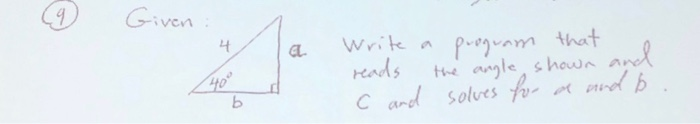 9 Given:
4
a
40°
b
Write a program that
reads the angle shown and
C and solves for a and b.